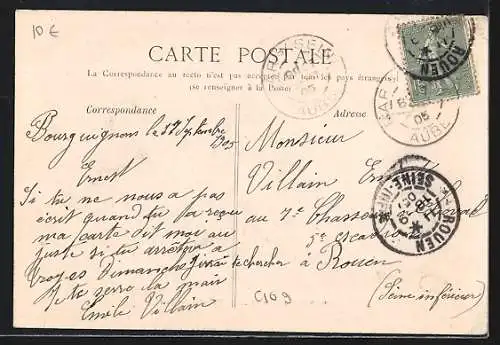 10 €
CARTE POSTALE
La Correspondance au recto n'est pas acceptée par tous les pays étrangers
(se renseigner à la Poste)
Correspondance
Bourguignons le 17 Septembre
1905
Ernest
Si tu ne nous a pas
écrit quand tu a reçu
ma carte dit moi au
juste si tu arrêtera à
Troyes dimanche j'irai te chercher
Je te serre la main
Emile Villain
Adresse
Monsieur
Villain Ernest
au 7e Chasseurs à cheval
5e escadron
à Rouen
(Seine inférieure)
C109
BAR-S-SEINE
05
AUBE
ROUEN
BAR
05
AUBE
ROUEN
SEINE-INF